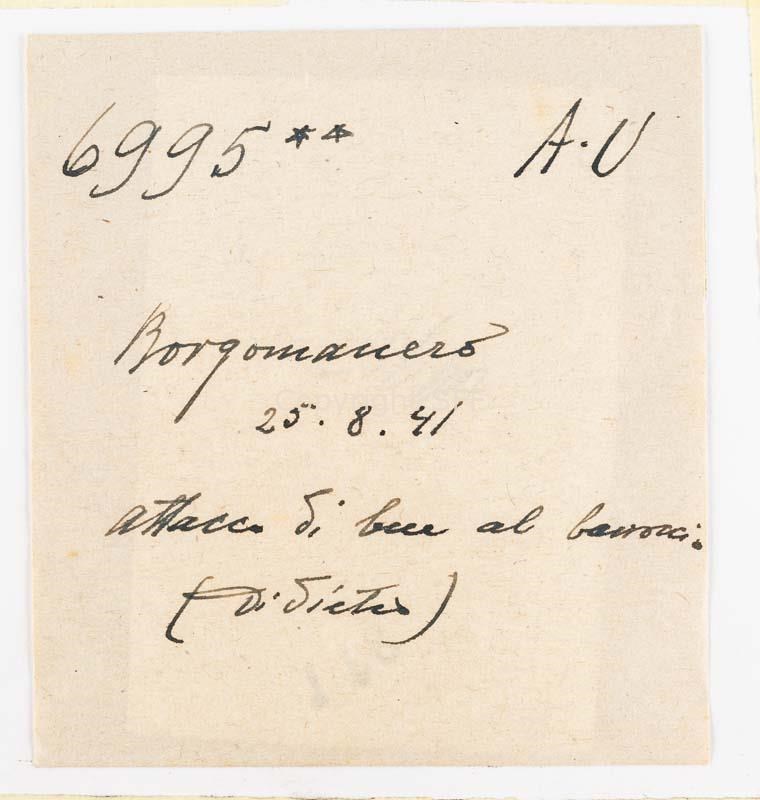 6995** A.U
Borgomanero
25.8.41
attacco di bue al baroccio
(Di dietro)